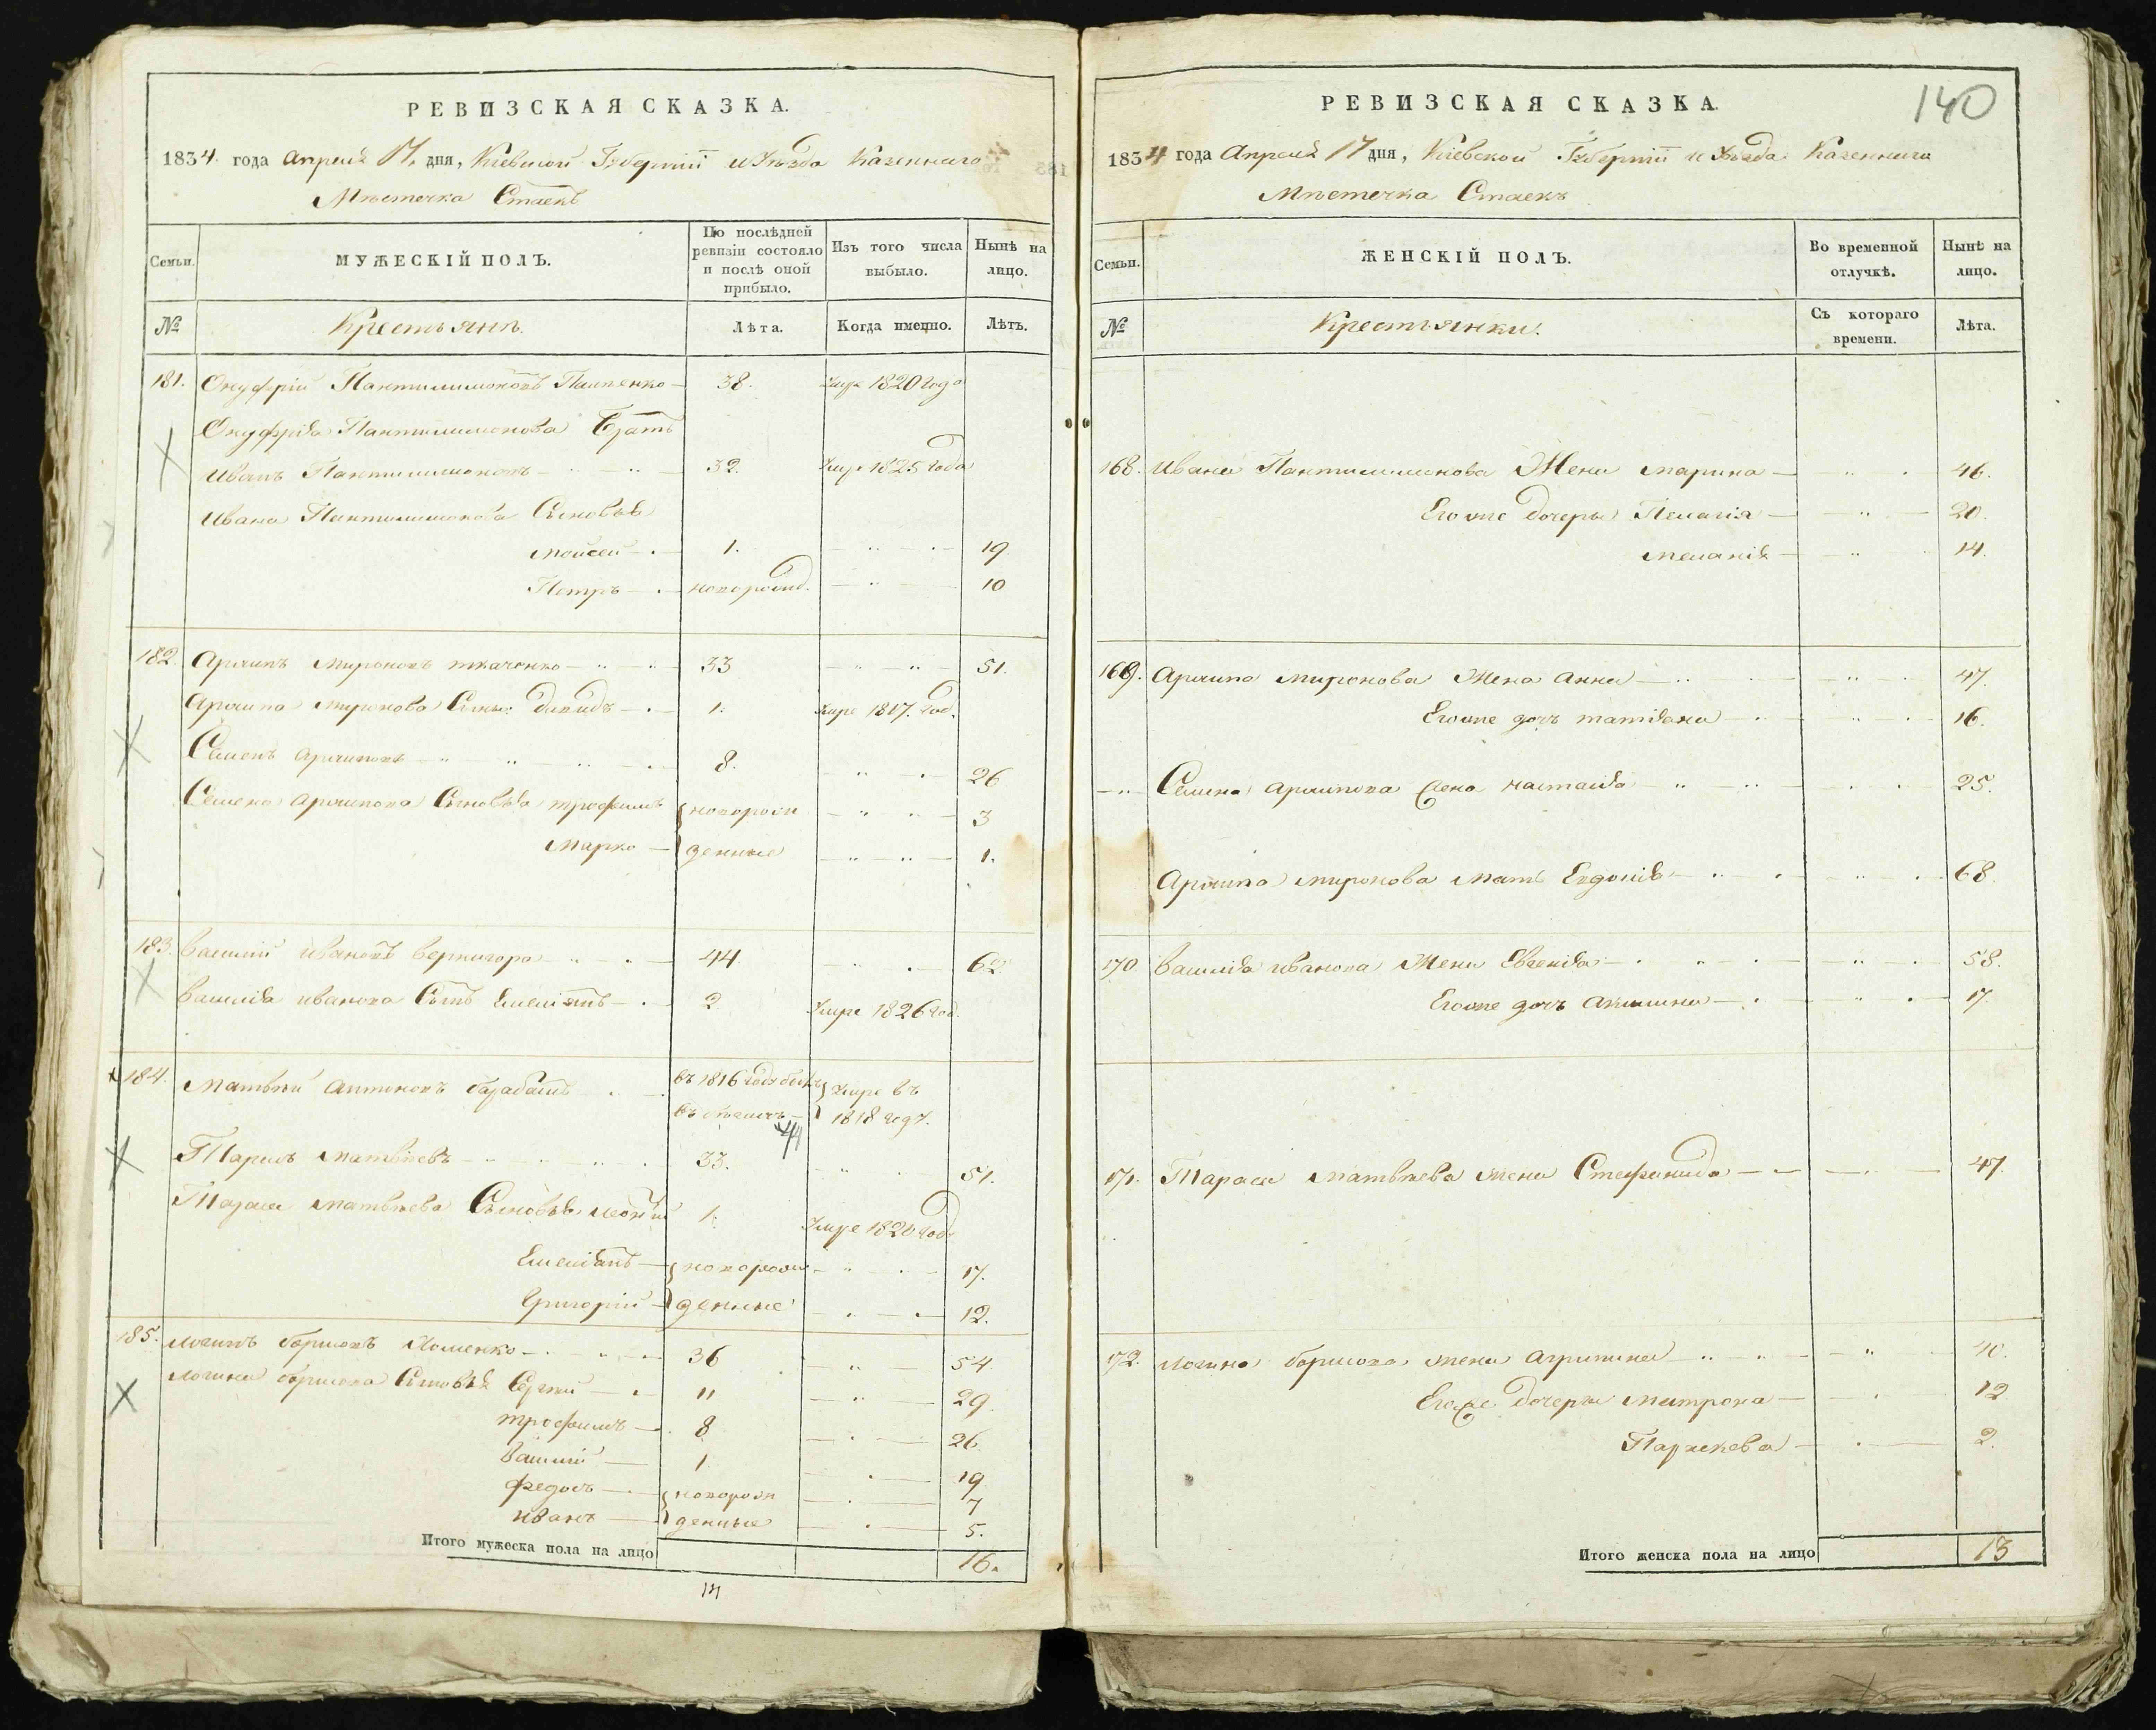 РЕВИЗСКАЯ СКАЗКА.
1834 года Апреля 17 дня, Кіевской Губерніи и Уѣзда Казеннаго
Мѣстечка Стаекъ
Семьи.
МУЖЕСКІЙ ПОЛЪ.
По послѣдней ревизіи состояло и послѣ оной прибыло.
Изъ того числа выбыло.
Нынѣ на лицо.
№
Крестьянъ.
Лѣта.
Когда именно.
Лѣтъ.
181. Онуфрій Пантилимоновъ 38. умре 1820 года
Онуфрія Пантилимонова Братъ
Иванъ Пантилимоновъ 32. умре 1825 года
Ивана Пантилимонова Сыновья
Мойсей 1. 19.
Петръ новорожд. 10
182. Архипъ Мироновъ Ткаченко 33 51.
Архипа Миронова Сынъ Давидъ 1. умре 1817. год.
Семенъ Архиповъ 8. 26
Семена Архипова Сыновья Трофимъ новорож 3
Марко денные 1.
183. Василій Ивановъ Вернигора 44 62
Василія Иванова Сынъ Емеліянъ 2 умре 1826 год.
184. Матвѣй Антиновъ Барабашъ въ 1816 году былъ умре въ
въ бѣгахъ 1818 году.
44
Тарасъ Матвѣевъ 33. 51.
Тараса Матвѣева Сыновья Леонтій 1. умре 1820 год.
Емеліянъ новорож 17.
Григорій денные 12.
185. Логинъ Борисовъ Хоменко 36 54.
Логина Борисова Сыновья Сергѣй 11 29.
Трофимъ 8 26.
Василій 1 19
Федосъ новорож 7
Иванъ денные 5.
Итого мужеска пола на лицо 16.
РЕВИЗСКАЯ СКАЗКА.
140
1834 года Апреля 17 дня, Кіевской Губерніи и Уѣзда Казеннаго
Мѣстечка Стаекъ
Семьи.
ЖЕНСКІЙ ПОЛЪ.
Во временной отлучкѣ.
Нынѣ на лицо.
№
Крестьянки.
Съ котораго времени.
Лѣта.
168. Ивана Пантилимонова Жена Марина 46.
Егоже дочеры Пелагія 20.
Меланія 14.
169. Архипа Миронова Жена Анна 47.
Егоже дочъ Татіяна 16.
Семена Архипова Жена Настасія 25.
Архипа Миронова Мать Евдокія 68
170 Василія Иванова Жена Евгенія 58.
Егоже дочъ Акилина 17.
171. Тараса Матвѣева Жена Стефанида 47.
172. Логина Борисова Жена Агрипина 40.
Егоже дочеры Матрона 12
Параскева 2.
Итого женска пола на лицо 13